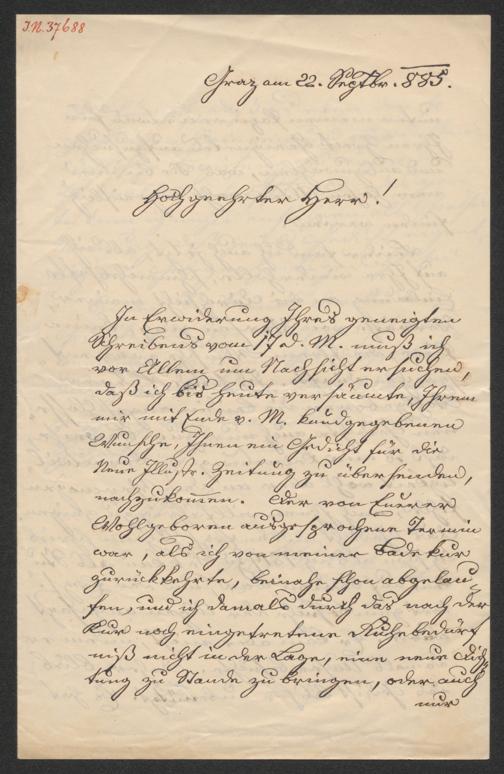 J.N. 37688
Graz am 22. Septbr. 885.
Hochgeehrter Herr!
In Erwiderung Ihres geneigten
Schreibens vom 17 d. M. muß ich
vor Allem um Nachsicht ersuchen,
daß ich bis heute versäumte, Ihrem
mir mit Ende v. M. kundgegebenen
Wunsche, Ihnen ein Gedicht für die
Neue Illustr. Zeitung zu übersenden,
nachzukommen. Der von Euerer
Wohlgeboren ausgesprochene Termin
war, als ich von meiner Badekur
zurückkehrte, beinahe schon abgelau-
fen, und ich damals durch das nach der
Kur noch eingetretene Ruhebedürf
niß nicht in der Lage, eine neue Dich
tung zu Stande zu bringen, oder auch
nur